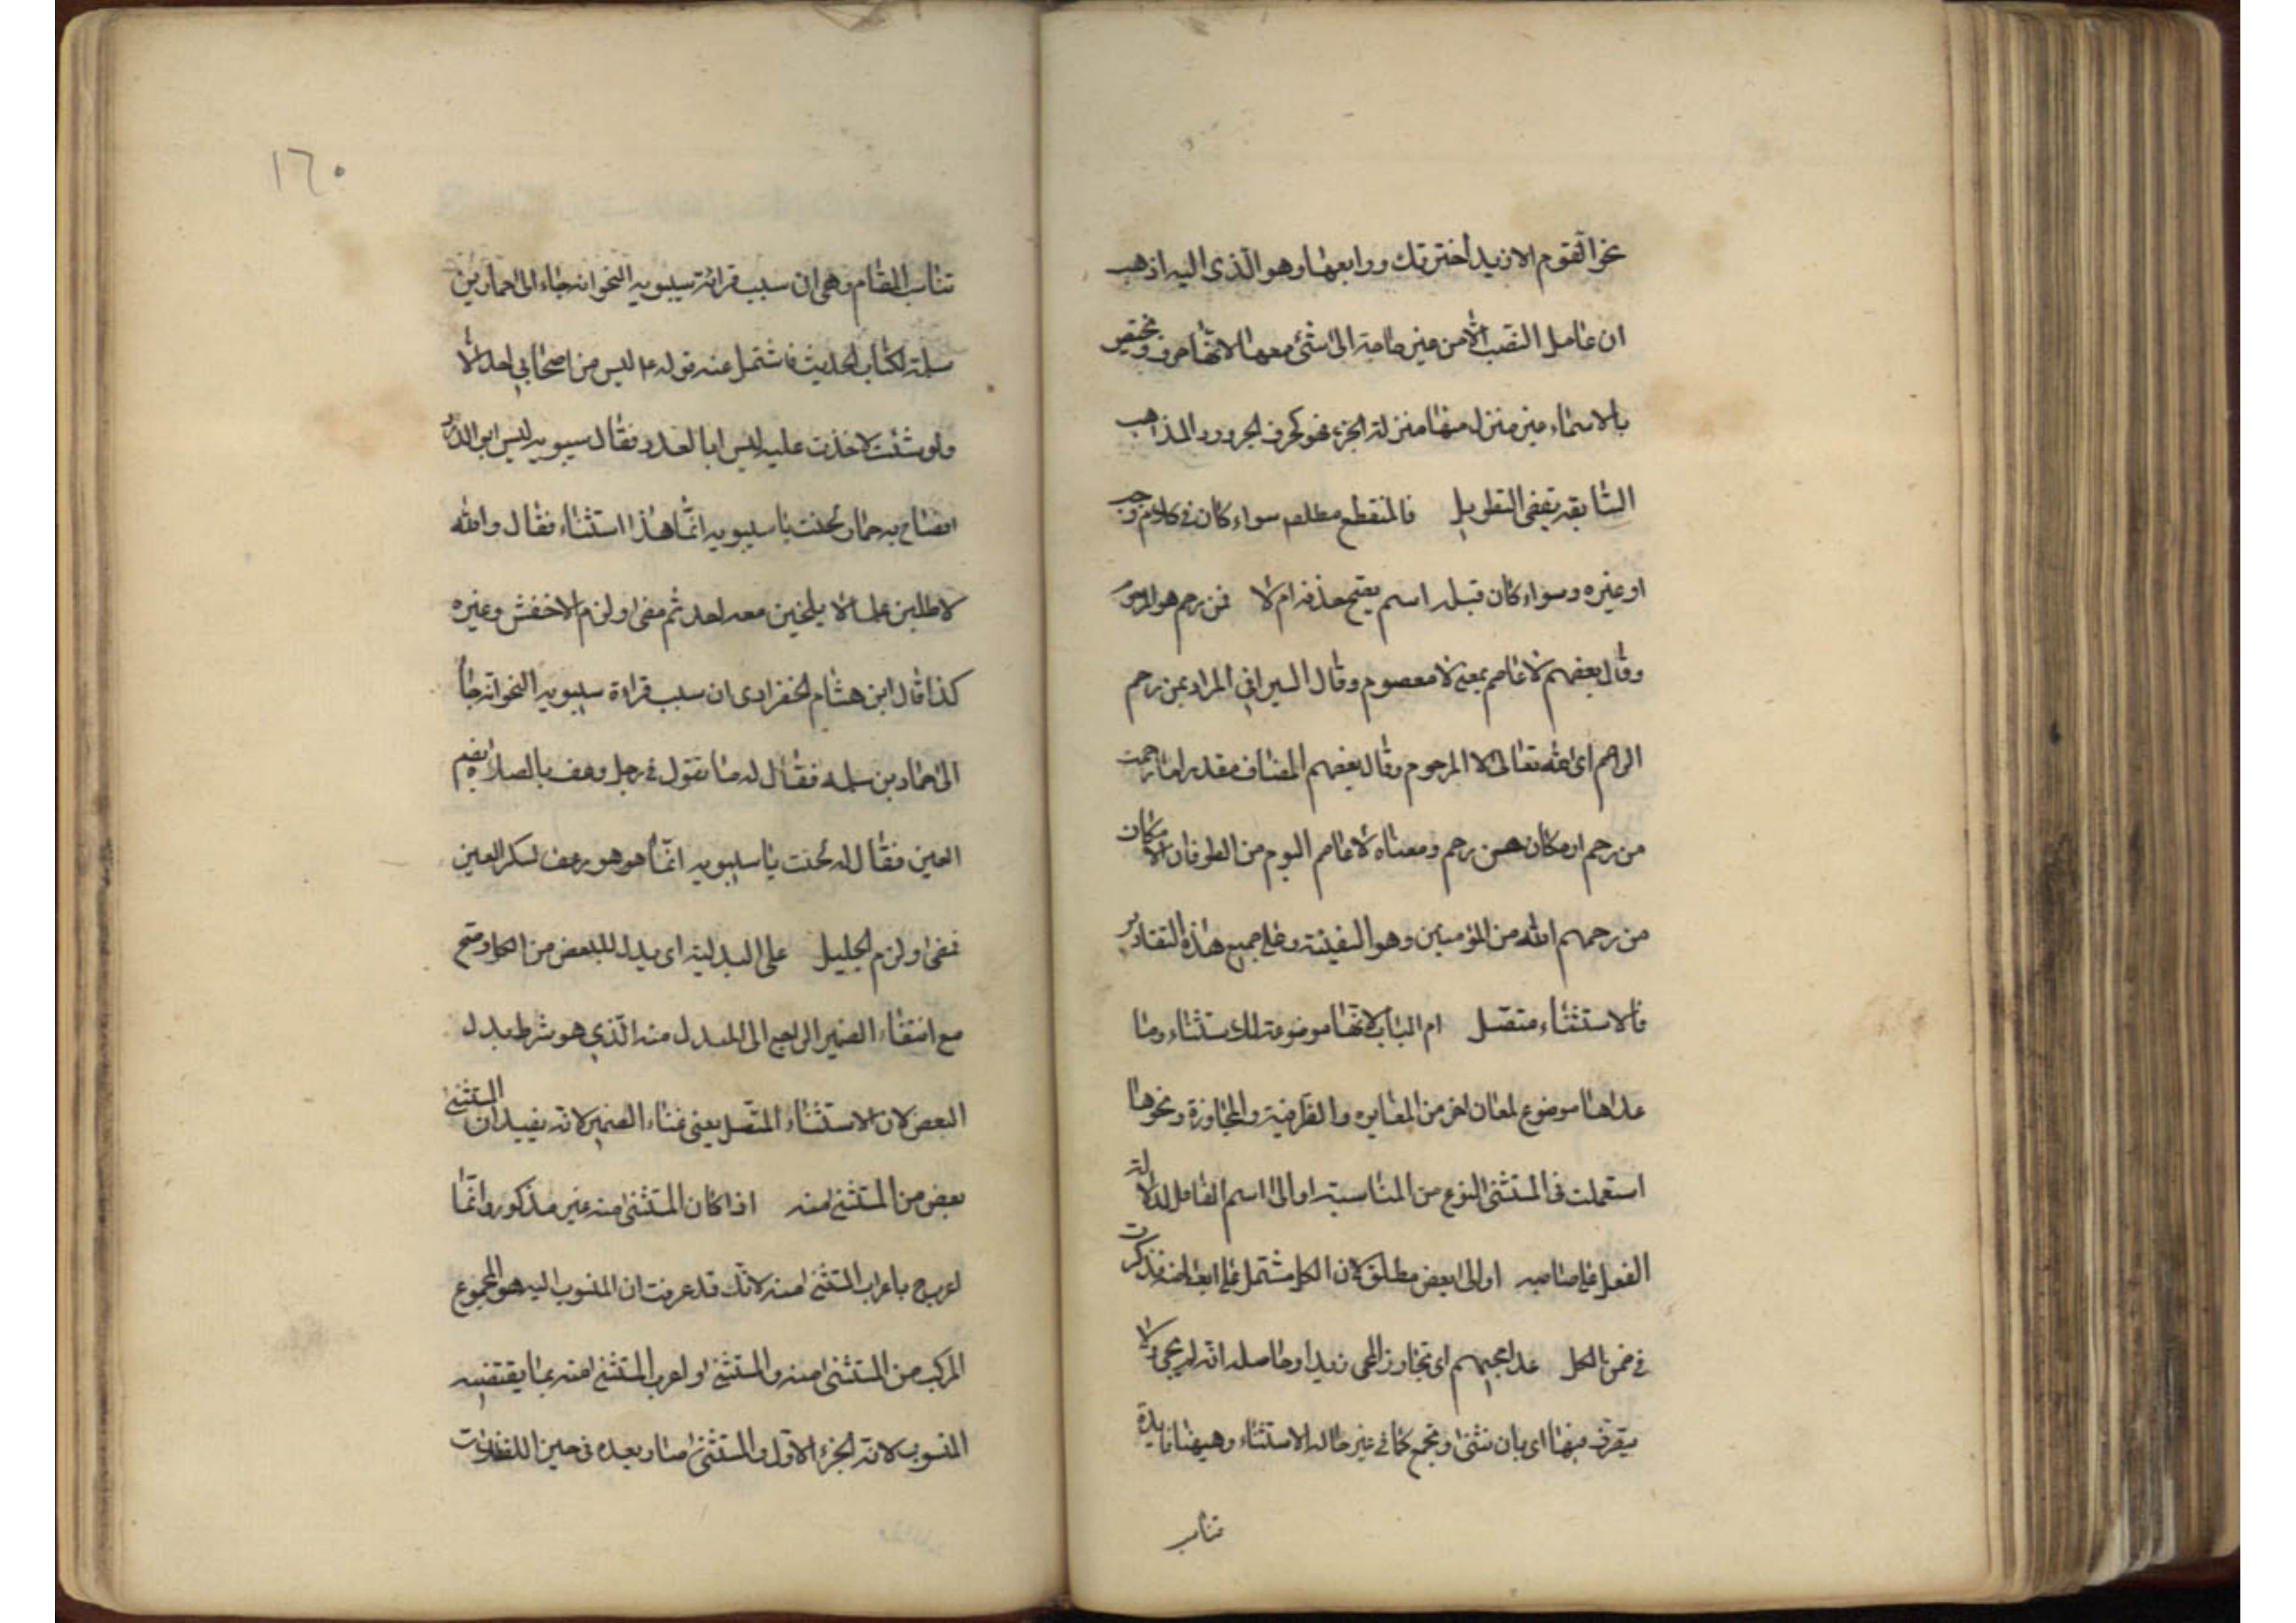 نحو القوم الا زيد اخترتك ورابعها وهو الذي اليه اذهب
ان عامل النصب الا من غير حاجة الى شئ معها لانها حرف مختص
بالاسماء غير منزل منها منزلة الجزء فهو كحرف الجر ورد المذاهب
السابقة يقضي التطويل فالمنقطع مطلقا سواء كان في كلام موجب
او غيره وسواء كان قبله اسم يصح حذفه ام لا فمن رحم هو المرحوم
وقال بعضهم لا عاصم بمعنى لا معصوم وقال السيرافي المراد بمن رحم
الراحم اى الله تعالى لا المرحوم وقال بعضهم المضاف مقدر اما رحمت
من رحم او مكان من رحم ومعناه لا عاصم اليوم من الطوفان الا مكان
من رحمهم الله من المؤمنين وهو السفينة وعلى جميع هذه التقادير
فالاستثناء متصل ام الباب لانها موضوعة للاستثناء وما
عداها موضوع لمعان اخر من المغايره والظرفية والمجاوزة ونحوها
استعملت في المستثنى لنوع من المناسبة او الى اسم الفاعل لدلالة
الفعل على صاحبه او الى بعض مطلق لان الكل مشتمل على ابعاضه فذكرت
في ضمن الكل عدا مجيهم اى تجاوز المجى زيدا وحاصله انه لم يجى ولا
يتصرف فيها اى بان تثنى وتجمع كما في غير حالة الاستثناء وهيهنا فايدة
تناسب
١٦٠
تناسب المقام وهى ان سبب قرائة سيبويه النحو انه جاء الى حماد بن
سلمة لكتاب الحديث فاستمل عنه قوله ع ليس من اصحابي احد الا
ولو شئت لاخذت عليه ليس ابا الدرد فقال سيبويه ليس ابو الدرد
فصاح به حماد لحنت يا سيبويه انما هذا استثناء فقال والله
لاطلبن علما لا يلحنين معه احد ثم مضى ولزم الاخفش وغيره
كذا قال ابن هشام الخضراوى ان سبب قراءة سيبويه النحو انه جاء
الى حماد بن سلمه فقال له ما تقول في رجل رعف بالصلاة بضم
العين فقال له لحنت يا سيبويه انما هو رعف بكسر العين
فمضى ولزم الخليل على البدلية اى بدل البعض من الكل وصح
مع انتفاء الضمير الراجع الى المبدل منه الذي هو شرط بدل
البعض لان الاستثناء المتصل يغنى غناء الضمير لانه يفيد ان المستثنى
بعض من المستثنى منه اذا كان المستثنى منه غير مذكور وانما
اعرب ح باعراب المستثنى منه لانك قد عرفت ان المنسوب اليه هو المجموع
المركب من المستثنى منه والمستثنى واعرب المستثنى منه بما يقتضيه
المنسوب لانه الجزء الاول والمستثنى صار بعده في حيز الفضلات